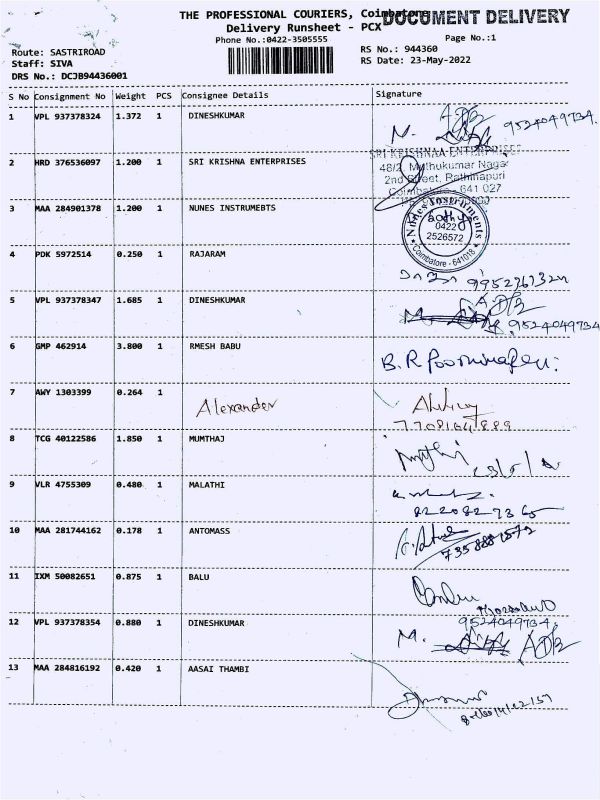 THE PROFESSIONAL COURIERS, Coimbatore
DOCUMENT DELIVERY
Delivery Runsheet - PCX
Phone No.:0422-3505555
Page No.:1
Route: SASTRIROAD
RS No.: 944360
Staff: SIVA
RS Date: 23-May-2022
DRS No.: DCJB94436001
S No Consignment No Weight PCS Consignee Details Signature
1 VPL 937378324 1.372 1 DINESHKUMAR
M. 9524049734.
2 HRD 376536097 1.200 1 SRI KRISHNA ENTERPRISES
SRI KRISHNAA ENTERPRISES
48/2, Muthukumar Nagar
2nd Street, Rathinapuri
Coimbatore - 641 027
3 MAA 284901378 1.200 1 NUNES INSTRUMEBTS
Nunes Instruments
0422
2526572
Coimbatore - 641018
4 PDK 5972514 0.250 1 RAJARAM
5 VPL 937378347 1.685 1 DINESHKUMAR
M. 9524049734
6 GMP 462914 3.800 1 RMESH BABU
B.R
7 AWY 1303399 0.264 1
Alexander
8 TCG 40122586 1.850 1 MUMTHAJ
9 VLR 4755309 0.480 1 MALATHI
10 MAA 281744162 0.178 1 ANTOMASS
11 IXM 50082651 0.875 1 BALU
12 VPL 937378354 0.880 1 DINESHKUMAR
9524049734
M.
13 MAA 284816192 0.420 1 AASAI THAMBI